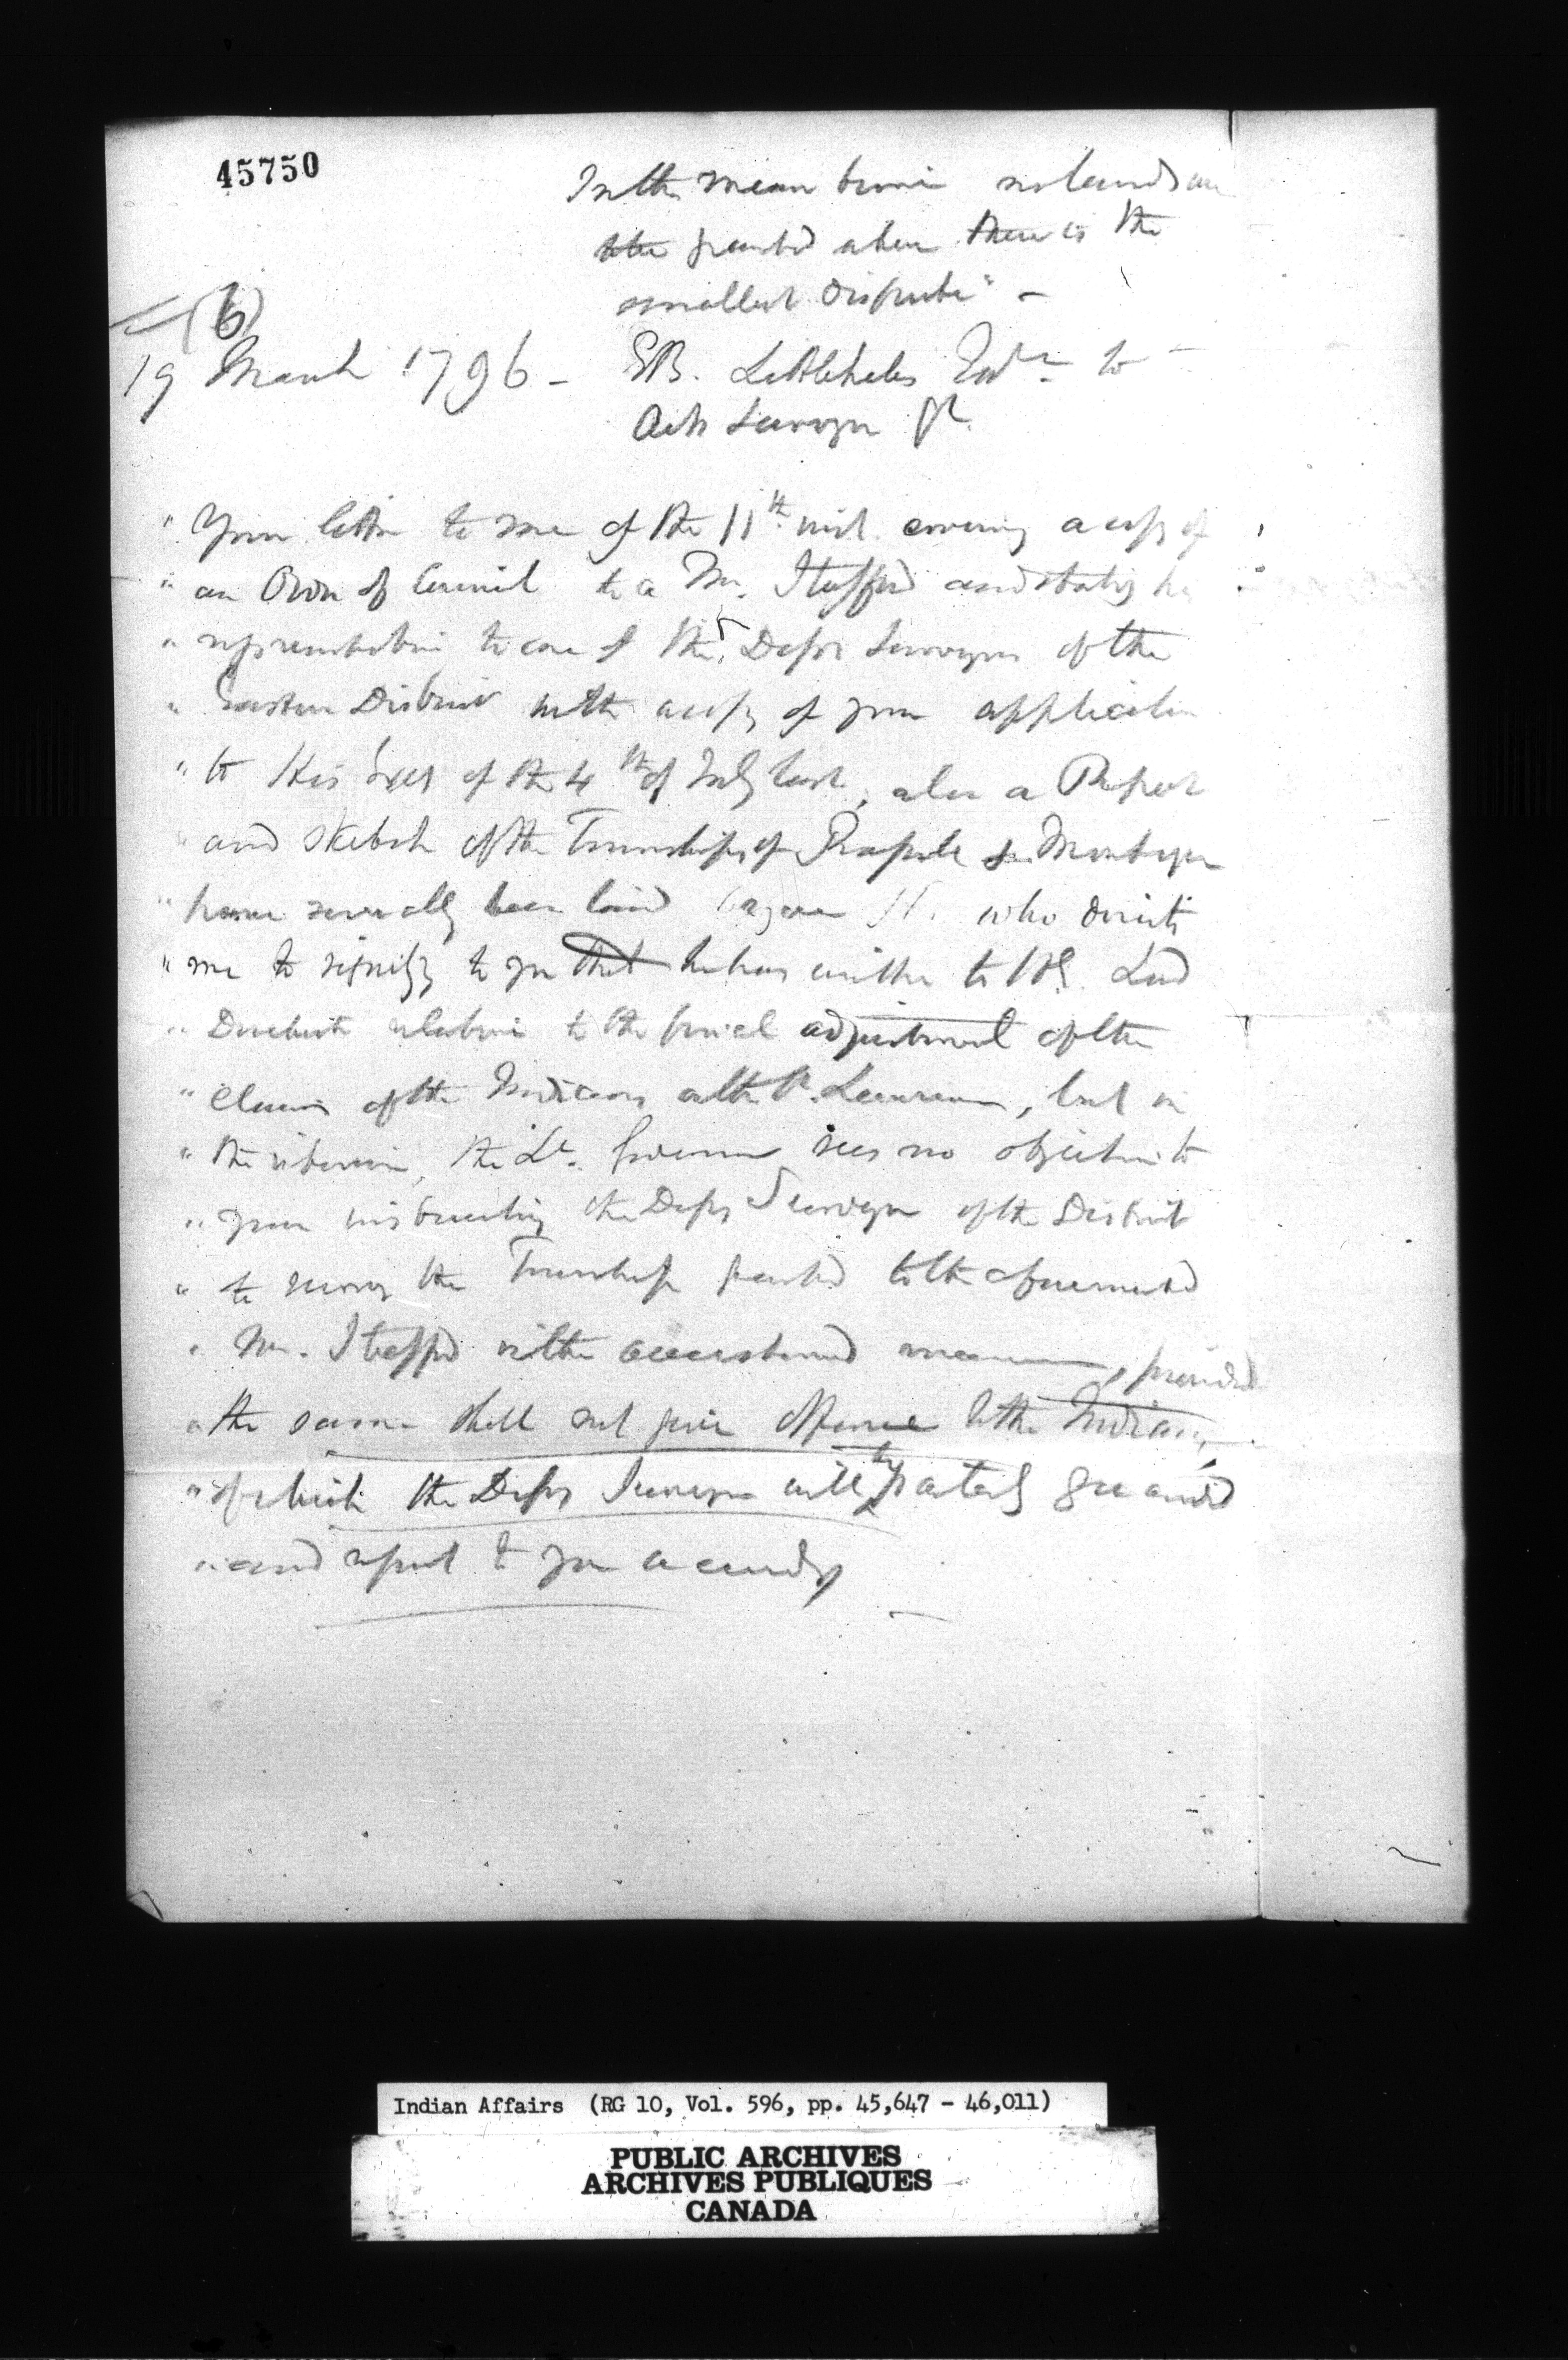 45750
In the mean time no lands are
to be granted where there is the
smallest dispute" -
(6)
19 March 1796 - EB. Littlehales Esqr. to
Actg Surveyor Gl.
" Your letter to me of the 11th inst. covering a copy of
" an Order of Council to a Mr. Stafford and stating his
" representation to one of the Depy Surveyors of the
" Eastern District with a copy of your application
" to His Excy of the 4th of July last, also a Report
" and sketch of the Townships of Plantagenet
" have severally been laid before who directs
" me to signify to you that he has written to Ld
" Dorchester relative to the final adjustment of the
" claims of the Indians on the St. Lawrence, but in
" the interim, the Lt. Governor sees no objection to
" your instructing the Depy Surveyor of the District
" to survey the Township granted to the aforementd
" Mr. Stafford in the accustomed manner, provided
" the same shall not give offence to the Indians,
" of which the Depy Surveyor will try
" and report to you accordgy
Indian Affairs (RG 10, Vol. 596, pp. 45,647 - 46,011)
PUBLIC ARCHIVES
ARCHIVES PUBLIQUES
CANADA